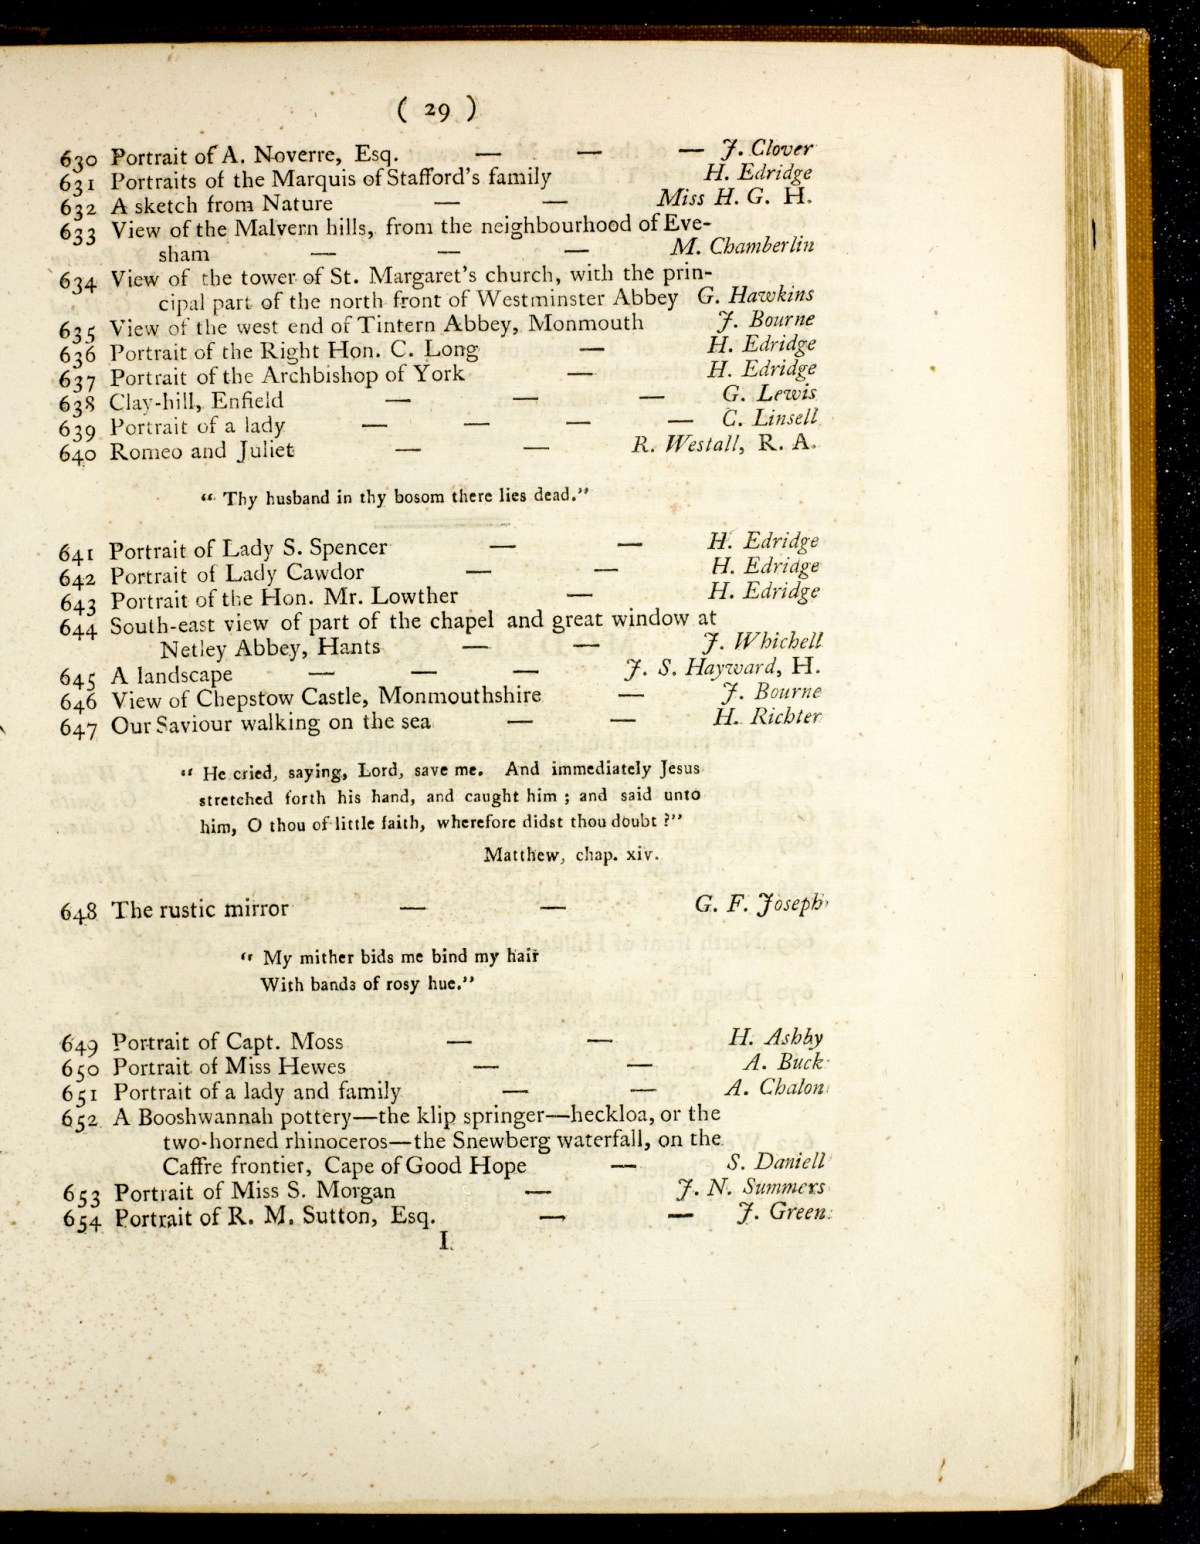 ( 29 )
630 Portrait of A. Noverre, Esq. — — — J. Clover
631 Portraits of the Marquis of Stafford's family H. Edridge
632 A sketch from Nature — — Miss H. G. H.
633 View of the Malvern hills, from the neighbourhood of Eve-
sham — — — M. Chamberlin
634 View of the tower of St. Margaret's church, with the prin-
cipal part of the north front of Westminster Abbey G. Hawkins
635 View of the west end of Tintern Abbey, Monmouth J. Bourne
636 Portrait of the Right Hon. C. Long — H. Edridge
637 Portrait of the Archbishop of York — H. Edridge
638 Clay-hill, Enfield — — — G. Lewis
639 Portrait of a lady — — — — C. Linsell
640 Romeo and Juliet — — R. Westall, R. A.
“ Thy husband in thy bosom there lies dead.”
641 Portrait of Lady S. Spencer — — H. Edridge
642 Portrait of Lady Cawdor — — H. Edridge
643 Portrait of the Hon. Mr. Lowther — H. Edridge
644 South-east view of part of the chapel and great window at
Netley Abbey, Hants — — J. Whichell
645 A landscape — — — J. S. Hayward, H.
646 View of Chepstow Castle, Monmouthshire — J. Bourne
647 Our Saviour walking on the sea — — H. Richter
“ He cried, saying, Lord, save me. And immediately Jesus
stretched forth his hand, and caught him ; and said unto
him, O thou of little faith, wherefore didst thou doubt ?”
Matthew, chap. xiv.
648 The rustic mirror — — G. F. Joseph
“ My mither bids me bind my hair
With bands of rosy hue.”
649 Portrait of Capt. Moss — — H. Ashby
650 Portrait of Miss Hewes — — A. Buck
651 Portrait of a lady and family — — A. Chalon
652 A Booshwannah pottery—the klip springer—heckloa, or the
two-horned rhinoceros—the Snewberg waterfall, on the
Caffre frontier, Cape of Good Hope — S. Daniell
653 Portrait of Miss S. Morgan — J. N. Summers
654 Portrait of R. M. Sutton, Esq. — — J. Green
I